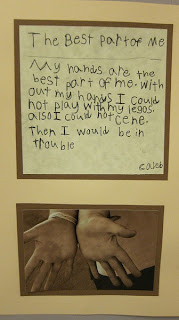 The Best part of Me
My hands are the
best part of me. With
out my hands I could
not play with my legos.
also I could not cene.
Then I would be in
trouble
caleb